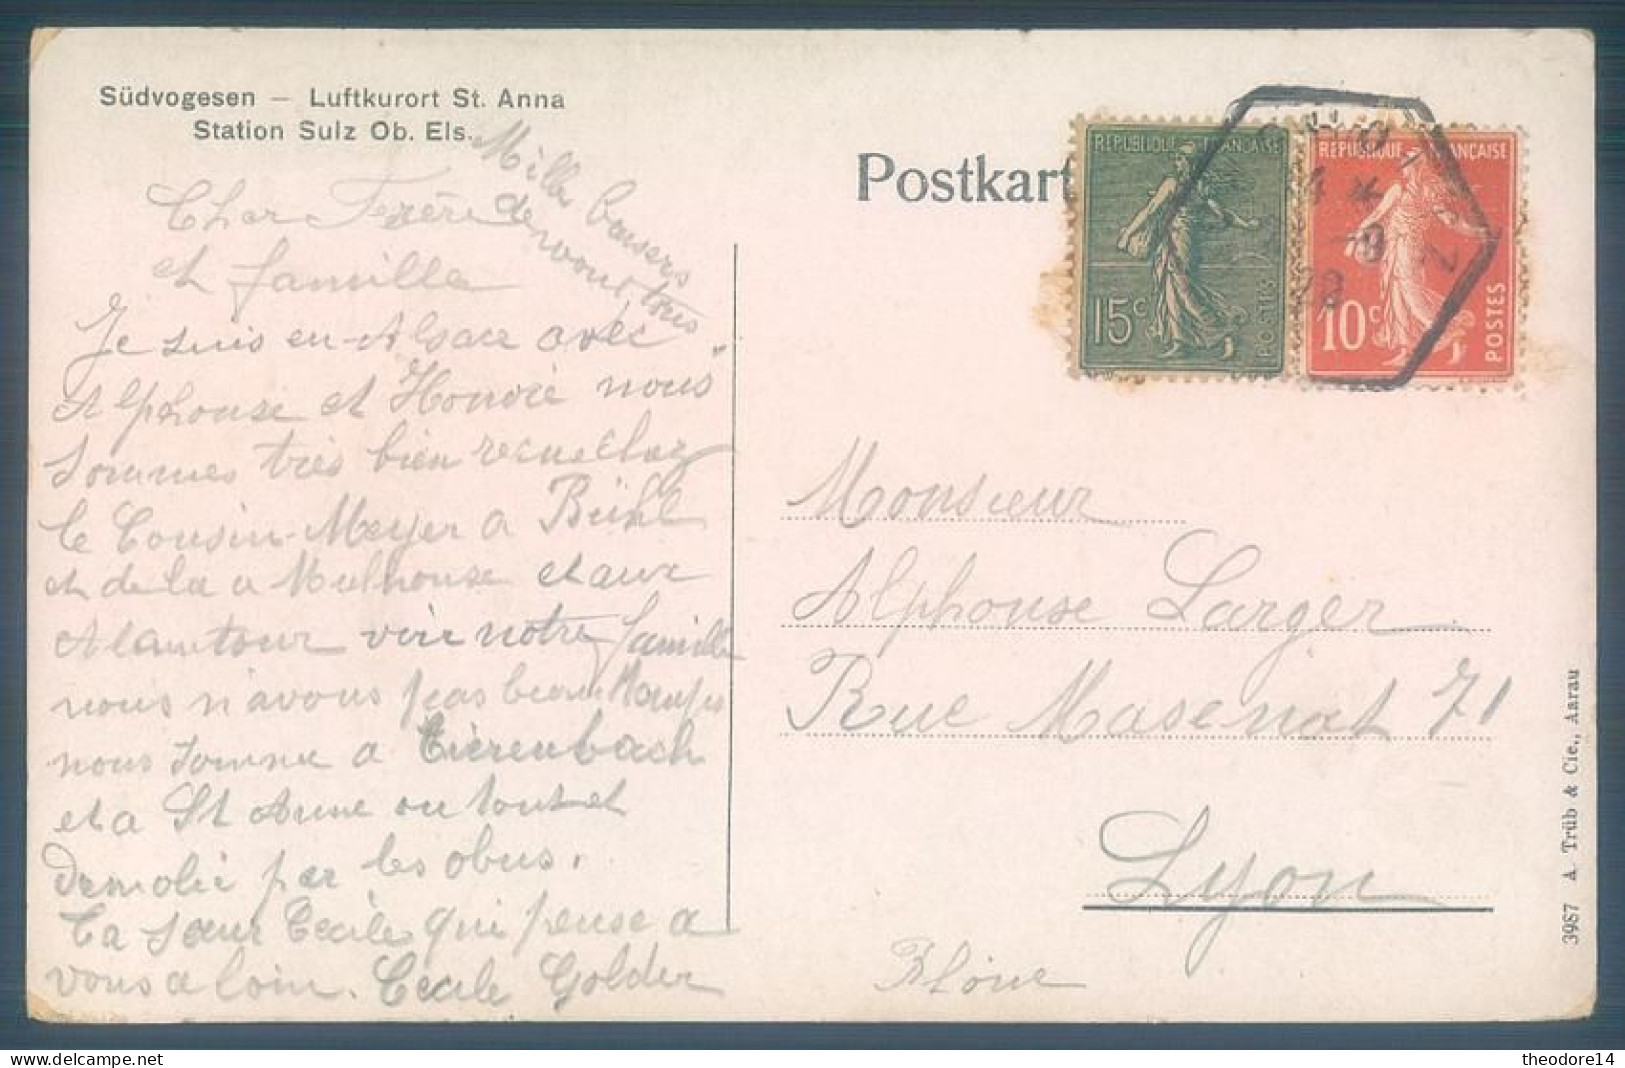 Südvogesen — Luftkurort St. Anna
Station Sulz Ob. Els.
Mille baisers
de vous tous
Cher Frère
et famille
Je suis en Alsace avec
Alphonse et Honoré nous
sommes très bien recue chez
le Cousin Meyer a Bühl
et de la a Mulhouse et aux
Alantour voir notre famille
nous n'avons pas beau temps
nous somme a Tierenbach
et a St Anne ou tout et
demolie par les obus.
Ta sœur Cecile qui pense a
vous a loin. Cecile Golder
Postkart
REPUBLIQUE FRANÇAISE
15c
POSTES
REPUBLIQUE FRANÇAISE
10c
POSTES
Monsieur
Alphonse Larger
Rue Masenat 71
Lyon
Rhône
3987 A. Trüb & Cie., Aarau
theodore14